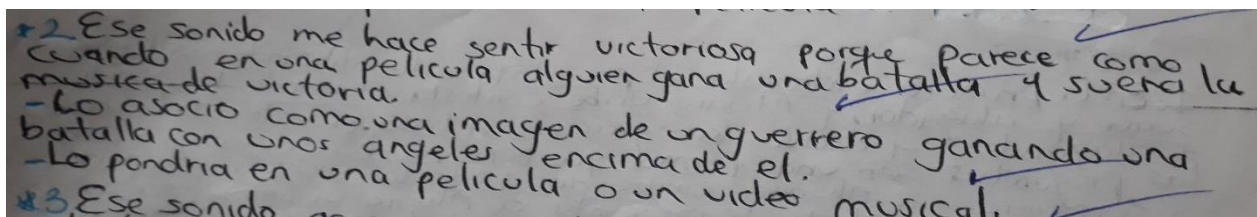 *2 Ese sonido me hace sentir victoriosa porque parece como
cuando en una pelicula alguien gana una batalla y suena la
musica de victoria.
-Lo asocio como una imagen de un guerrero ganando una
batalla con unos angeles encima de el.
-Lo pondria en una pelicula o un video musical.
*3. Ese sonido